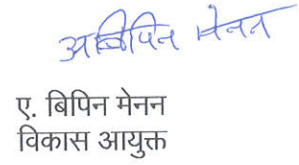 अ बिपिन मेनन
ए. बिपिन मेनन
विकास आयुक्त